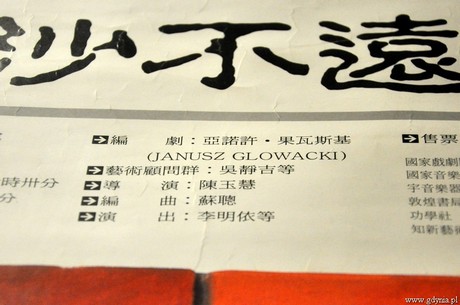 紗不遠
編 劇：亞諾許・果瓦斯基
(JANUSZ GLOWACKI)
藝術顧問群：吳靜吉等
導 演：陳玉慧
編 曲：蘇聰
演 出：李明依等
時卅分
分
售票
國家戲劇
國家音樂
宇音樂器
敦煌書局
功學社
知新藝術
www.gdynia.pl